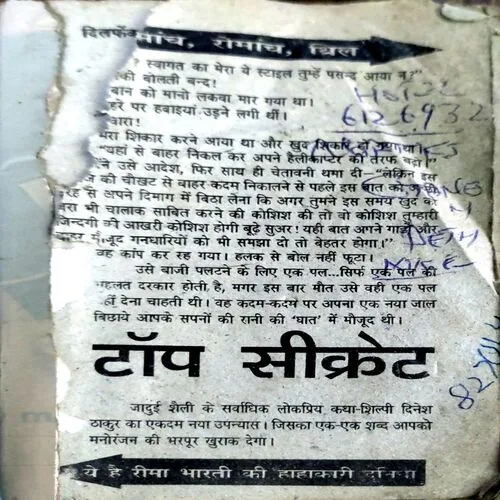 दिलफेंक रोमांच, रोमांच, थ्रिल
? स्वागत का मेरा ये स्टाइल तुम्हें पसन्द आया न?"
की बोलती बन्द!
बान को मानो लकवा मार गया था।
हरे पर हवाइयां उड़ने लगी थीं।
चारा!
मेरा शिकार करने आया था और खुद शिकार हो गया था।
"यहां से बाहर निकल कर अपने हैलीकाप्टर की तरफ बढ़ो।"
ने उसे आदेश, फिर साथ ही चेतावनी थमा दी—"लेकिन इस
की चौखट से बाहर कदम निकालने से पहले इस बात को
रह से अपने दिमाग में बिठा लेना कि अगर तुमने इस समय खुद को
रा भी चालाक साबित करने की कोशिश की तो वो कोशिश तुम्हारी
जिन्दगी की आखरी कोशिश होगी बूढ़े सुअर! यही बात अपने गार्डों और
बाहर मौजूद गनधारियों को भी समझा दो तो बेहतर होगा।"
वह कांप कर रह गया। हलक से बोल नहीं फूटा।
उसे बाजी पलटने के लिए एक पल... सिर्फ एक पल की
मोहलत दरकार होती है, मगर इस बार मौत उसे वही एक पल
नहीं देना चाहती थी। वह कदम-कदम पर अपना एक नया जाल
बिछाये आपके सपनों की रानी की 'घात' में मौजूद थी।
टॉप सीक्रेट
जादुई शैली के सर्वाधिक लोकप्रिय कथा-शिल्पी दिनेश
ठाकुर का एकदम नया उपन्यास। जिसका एक-एक शब्द आपको
मनोरंजन की भरपूर खुराक देगा।
ये है रीमा भारती की हाहाकारी दुनिया
6126932